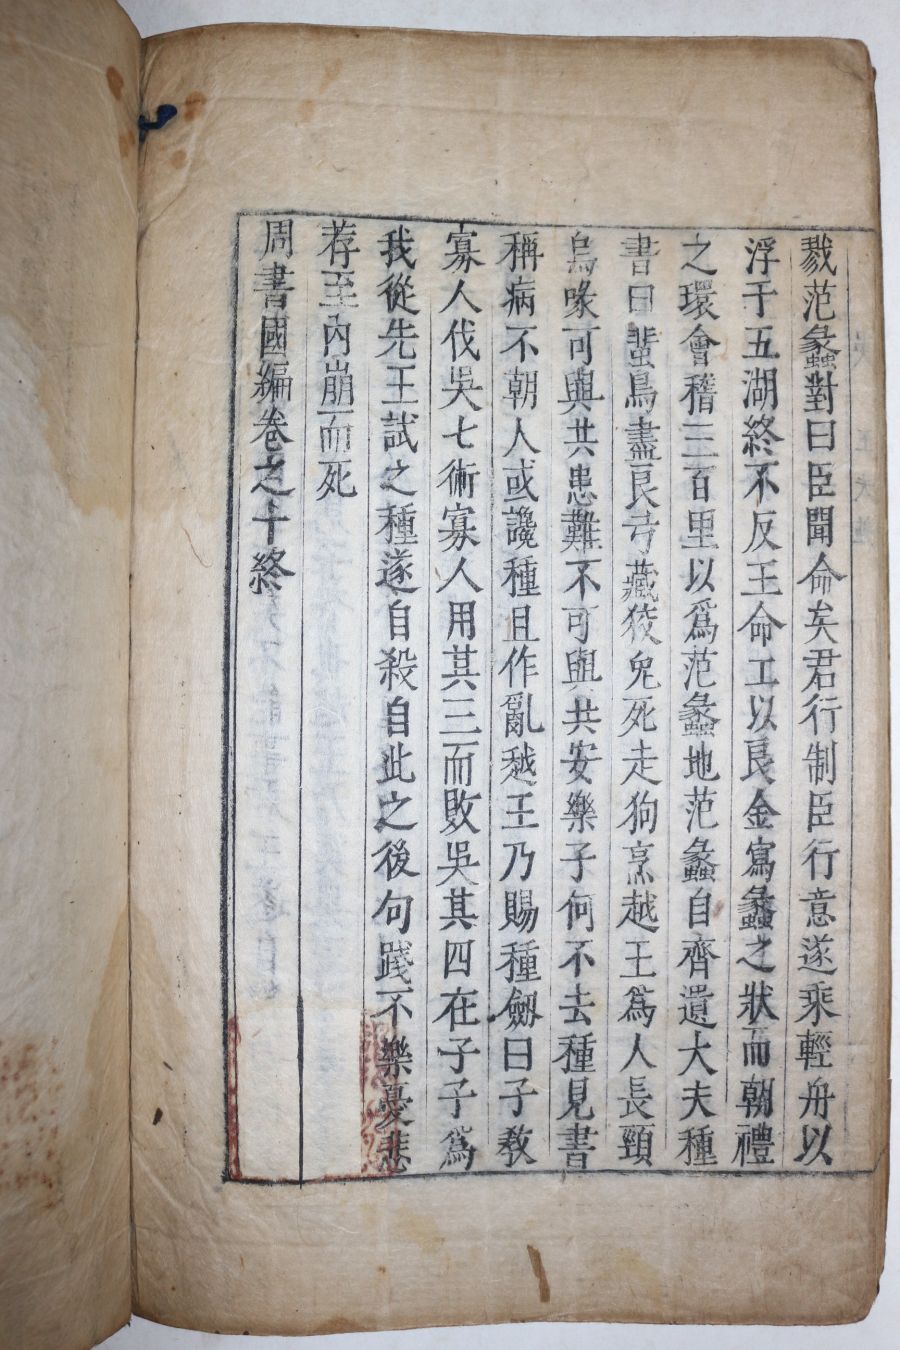 戮范蠡對曰臣聞命矣君行制臣行意遂乘輕舟以
浮于五湖終不反王命工以良金寫蠡之狀而朝禮
之環會稽三百里以爲范蠡地范蠡自齊遺大夫種
書曰蜚鳥盡良弓藏狡兔死走狗烹越王爲人長頸
烏喙可與共患難不可與共安樂子何不去種見書
稱病不朝人或讒種且作亂越王乃賜種劔曰子教
寡人伐吳七術寡人用其三而敗吳其四在子子爲
我從先王試之種遂自殺自此之後句踐不樂憂悲
荐至內崩而死
周書國編卷之十終